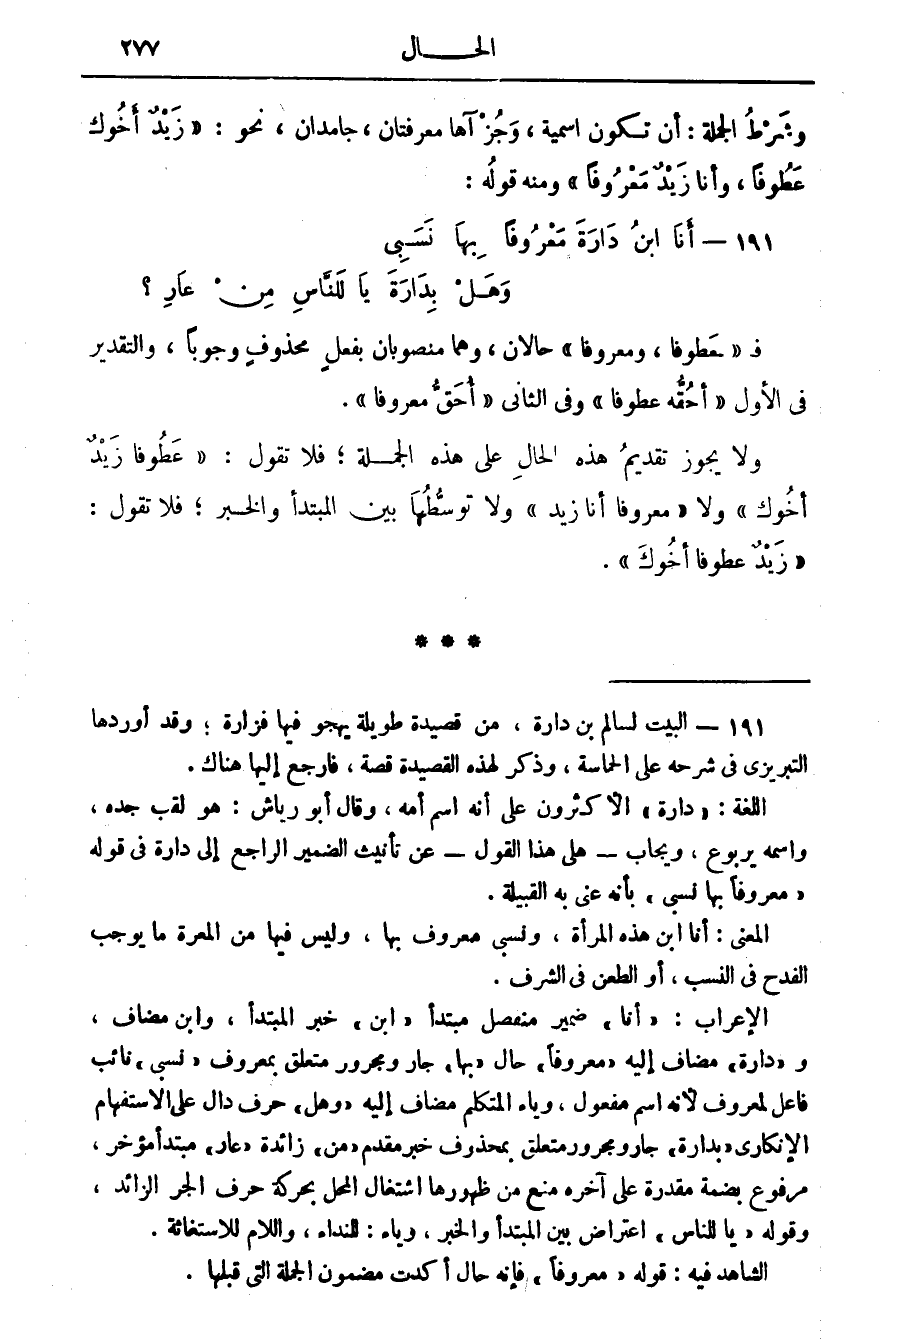 الحـــال ٢٧٧
وشَرْطُ الجملة : أن تكون اسمية ، وَجُزْآها معرفتان ، جامدان ، نحو : « زَيْدٌ أَخُوك
عَطُوفًا ، وأنا زَيْدٌ مَعْرُوفًا » ومنه قولُه :
١٩١ — أَنَا ابنُ دَارَةَ مَعْرُوفًا بِهَا نَسَبِى
وَهَلْ بِدَارَةَ يَا لَلنَّاسِ مِنْ عَارِ ؟
فـ « ـعَطوفا ، ومعروفا » حالان ، وهما منصوبان بفعلٍ محذوفٍ وجوباً ، والتقدير
فى الأول « أحُقُّه عطوفا » وفى الثانى « أُحَقُّ معروفا » .
ولا يجوز تقديمُ هذه الحالِ على هذه الجملة ؛ فلا تقول : « عَطُوفا زَيْدٌ
أخُوك » ولا « معروفا أنا زيد » ولا توسُّطُهَا بين المبتدأ والخبر ؛ فلا تقول :
« زَيْدٌ عطوفا أخُوكَ » .
* * *
١٩١ — البيت لسالم بن دارة ، من قصيدة طويلة يهجو فيها فزارة ؛ وقد أوردها
التبريزى فى شرحه على الحماسة ، وذكر لهذه القصيدة قصة ، فارجع إليها هناك .
اللغة : « دارة » الأكثرون على أنه اسم أمه ، وقال أبو رياش : هو لقب جده ،
واسمه يربوع ، ويجاب — على هذا القول — عن تأنيث الضمير الراجع إلى دارة فى قوله
« معروفاً بها نسبى » بأنه عنى به القبيلة .
المعنى : أنا ابن هذه المرأة ، ونسبى معروف بها ، وليس فيها من المعرة ما يوجب
القدح فى النسب ، أو الطعن فى الشرف .
الإعراب : « أنا » ضمير منفصل مبتدأ « ابن » خبر المبتدأ ، وابن مضاف ،
و « دارة » مضاف إليه « معروفاً » حال « بها » جار ومجرور متعلق بمعروف « نسبى » نائب
فاعل لمعروف لأنه اسم مفعول ، وياء المتكلم مضاف إليه « وهل » حرف دال على الاستفهام
الإنكارى « بدارة » جار ومجرور متعلق بمحذوف خبر مقدم « من » زائدة « عار » مبتدأ مؤخر ،
مرفوع بضمة مقدرة على آخره منع من ظهورها اشتغال المحل بحركة حرف الجر الزائد ،
وقوله « يا للناس » اعتراض بين المبتدأ والخبر ، وياء : للنداء ، واللام للاستغاثة .
الشاهد فيه : قوله « معروفاً » فإنه حال أكدت مضمون الجملة التى قبلها .